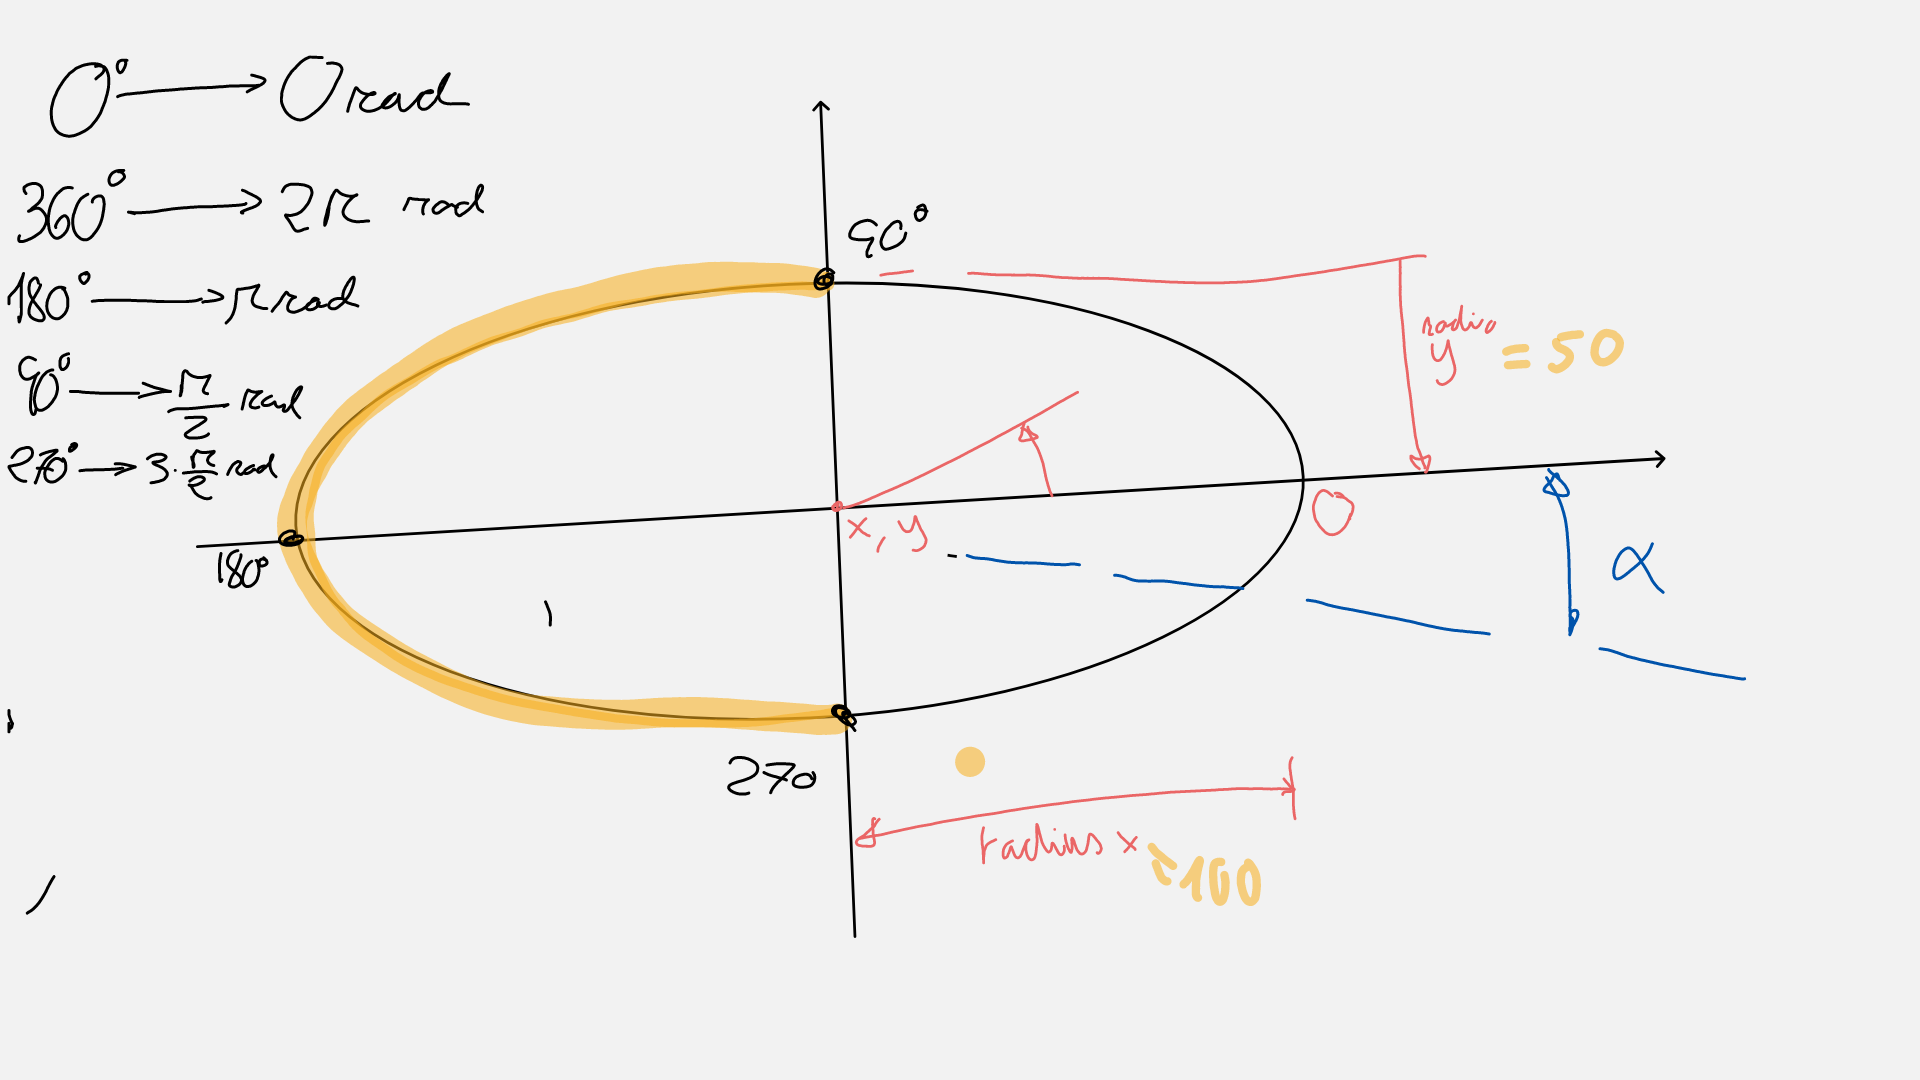 0° → 0 rad
360° → 2π rad
180° → π rad
90° → π/2 rad
270° → 3·π/2 rad
90°
radio
y = 50
0
x, y
α
180°
270
radius x = 100